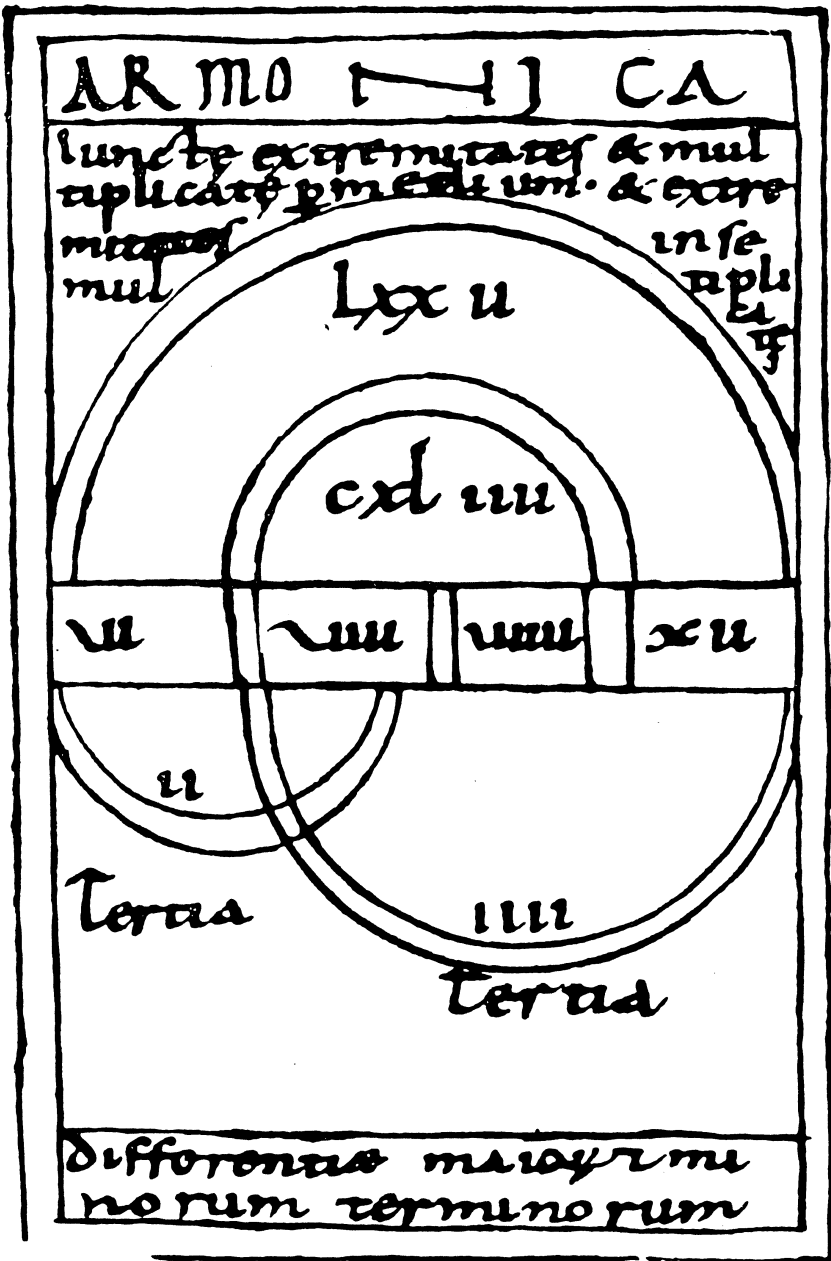 ARMONICA
Iunctę extremitates & mul
tiplicatę ꝑ medium · & extre
mitates in se
mul tipli
ca
Lxx u
cxl iiii
x u
ii
Tertia
iiii
Tertia
differentiæ maioꝝ ⁊ mi
norum terminorum